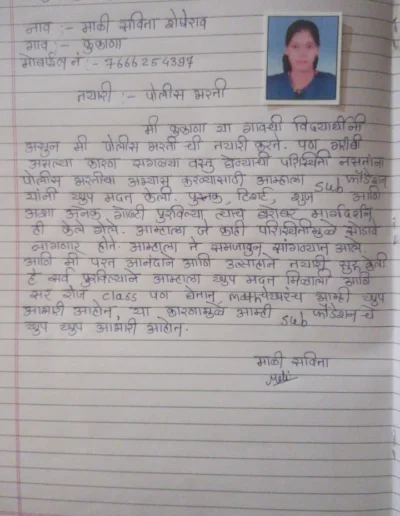 नाव :- माळी सविना
गाव :- कुळागा
मोबाईल नं :- 7666254397
तयारी :- पोलीस भरती
मी कुळागा या गावची विद्यार्थीनी
असुन मी पोलीस भरती ची तयारी करते. पण गरीबी
असल्या कारण सगळ्या वस्तु घेण्याची परिस्थिती नसताना
पोलीस भरतीचा अभ्यास करण्यासाठी आम्हाला फौंडेशन
यांनी खुप मदत केली. पुस्तक, टिशर्ट, शुज आणि
अशा अनेक गोष्टी पुरविल्या त्याच बरोबर मार्गदर्शन
ही केले गेले. आम्हाला जे काही परिस्थितीमुळे
लागणार होते. आम्हाला ते समजावुन सांगण्यात आले
आणि मी परत आनंदाने आणि उत्साहाने तयारी सुरू केली
हे सर्व पुरविल्याने आम्हाला खुप मदत मिळाली आणि
सर रोज class पण घेतात, आम्ही खुप
आभारी आहोत, या कारणामुळे आम्ही फौंडेशन चे
खुप खुप आभारी आहोत.
माळी सविना